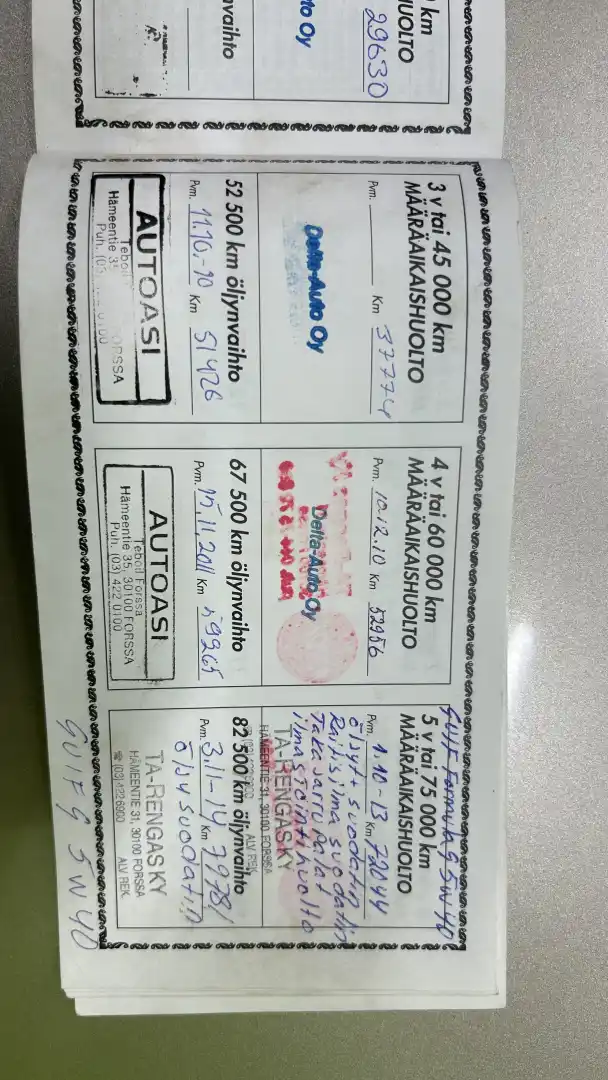 km
UOLTO
29630
to Oy
vaihto
3 v tai 45 000 km
MÄÄRÄAIKAISHUOLTO
Pvm. Km 37774
Delta-Auto Oy
52 500 km öljynvaihto
Pvm. 11.10.-10 Km 51426
AUTOASI
Teboil
Hämeentie 3 FORSSA
Puh. (03) 0100
4 v tai 60 000 km
MÄÄRÄAIKAISHUOLTO
Pvm. 10.12.10 Km 52956
Delta-Auto Oy
67 500 km öljynvaihto
Pvm. 15.11.2011 Km 59265
AUTOASI
Teboil Forssa
Hämeentie 35, 30100 FORSSA
Puh. (03) 422 0100
GULF Formula G 5W40
5 v tai 75 000 km
MÄÄRÄAIKAISHUOLTO
Pvm. 1.10-13 Km 72044
öljyt + suodatin
Raitisilma suodatin
Takajarru palat
ilmastointihuolto
TA-RENGASKY
HÄMEENTIE 31, 30100 FORSSA
ALV REK
82 500 km öljynvaihto
Pvm. 3.11-14 Km 7978
öljysuodatin
TA-RENGASKY
HÄMEENTIE 31, 30100 FORSSA
☎ (03) 422 6900 ALV REK.
GULF G 5W40